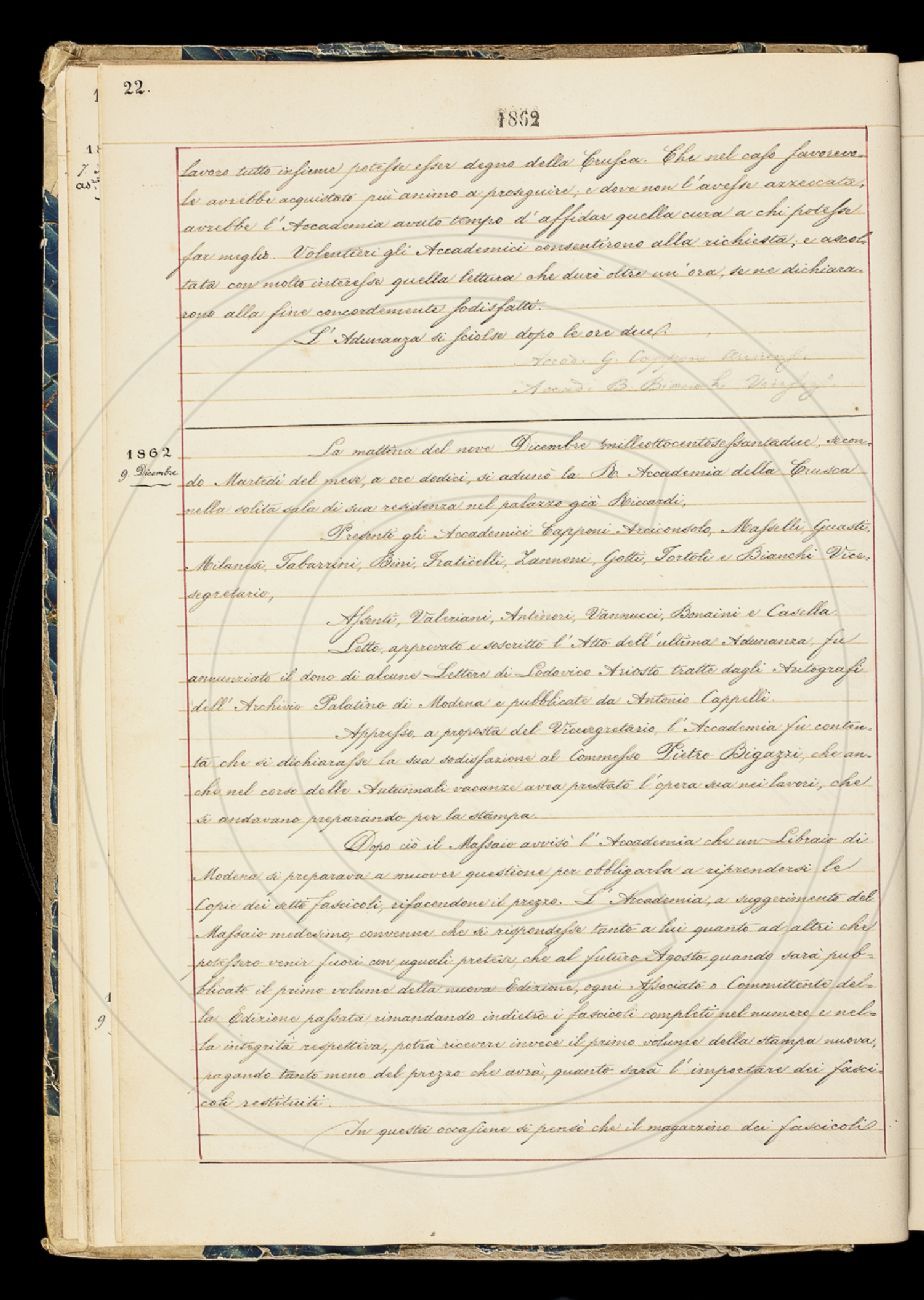 22.
1862
lavoro tutto insieme potesse esser degno della Crusca. Che nel caso favorevo-
le avrebbe acquistato più animo a proseguire, e dove non l'avesse azzeccata,
avrebbe l'Accademia avuto tempo d'affidar quella cura a chi potesse
far meglio. Volentieri gli Accademici consentirono alla richiesta, e ascol-
tata con molto interesse quella lettura che durò oltre un'ora, se ne dichiara-
rono alla fine concordemente sodisfatti.
L'Adunanza si sciolse dopo le ore due.
Accad. G. Capponi
Accad. B. Bianchi
1862
9 Dicembre
La mattina del nove Dicembre milleottocentosessantadue, secon-
do Martedì del mese, a ore dodici, si adunò la R. Accademia della Crusca
nella solita sala di sua residenza nel palazzo già Riccardi.
Presenti gli Accademici Capponi Arciconsolo, Masselli, Guasti,
Milanesi, Tabarrini, Bini, Fraticelli, Zannoni, Gotti, Tortoli e Bianchi Vice-
segretario,
Assenti, Valeriani, Antinori, Vannucci, Bonaini e Casella.
Letto, approvato e soscritto l'Atto dell'ultima Adunanza, fu
annunziato il dono di alcune Lettere di Lodovico Ariosto tratte dagli Autografi
dell'Archivio Palatino di Modena e pubblicate da Antonio Cappelli.
Appresso, a proposta del Vicesegretario, l'Accademia fu conten-
ta che si dichiarasse la sua sodisfazione al Commesso Pietro Bigazzi, che an-
che nel corso delle Autunnali vacanze avea prestato l'opera sua nei lavori, che
si andavano preparando per la stampa.
Dopo ciò il Massaio avvisò l'Accademia che un Libraio di
Modena si preparava a muover questione per obbligarla a riprendersi le
Copie dei sette fascicoli, rifacendone il prezzo. L'Accademia, a suggerimento del
Massaio medesimo, convenne che si rispondesse tanto a lui quanto ad altri che
potessero venir fuori con uguali pretese, che al futuro Agosto quando sarà pub-
blicato il primo volume della nuova Edizione, ogni Associato o Committente del-
la Edizione passata rimandando indietro i fascicoli completi nel numero e nel-
la integrità respettiva, potrà ricevere invece il primo volume della stampa nuova,
pagando tanto meno del prezzo che avrà, quanto sarà l'importare dei fasci-
coli restituiti.
In questa occasione si pensò che il magazzino dei fascicoli